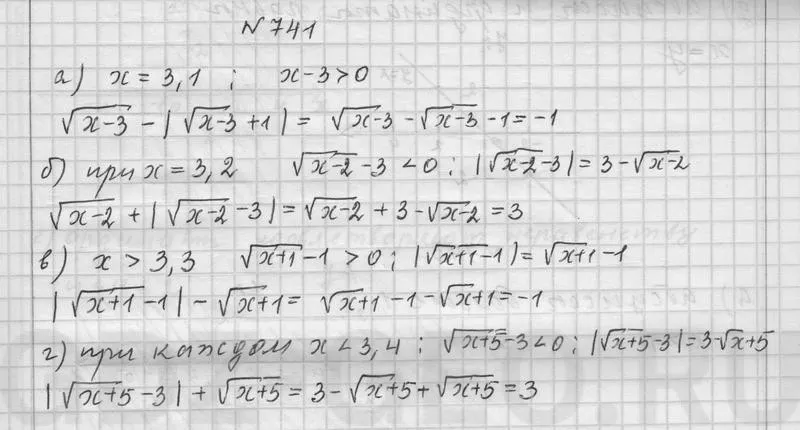 №741
а) x = 3,1 ; x-3>0
√x-3 - |√x-3+1| = √x-3 - √x-3 -1=-1
б) при x = 3,2 √x-2 -3 <0 ; |√x-2-3|= 3-√x-2
√x-2 + |√x-2 -3|=√x-2 + 3-√x-2 =3
в) x > 3,3 √x+1-1 >0 ; |√x+1-1|=√x+1-1
|√x+1-1|-√x+1= √x+1-1-√x+1=-1
г) при каждом x <3,4 ; √x+5-3<0; |√x+5-3|=3-√x+5
|√x+5-3|+√x+5 = 3-√x+5+√x+5=3